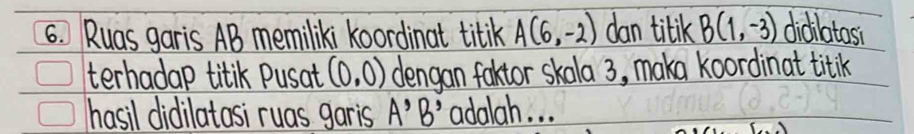 6. Ruas garis AB memiliki koordinat titik A(6,-2) dan titik B(1,-3) didilatasi
terhadap titik pusat (0,0) dengan faktor skala 3, maka koordinat titik
hasil didilatasi ruas garis A'B' adalah...